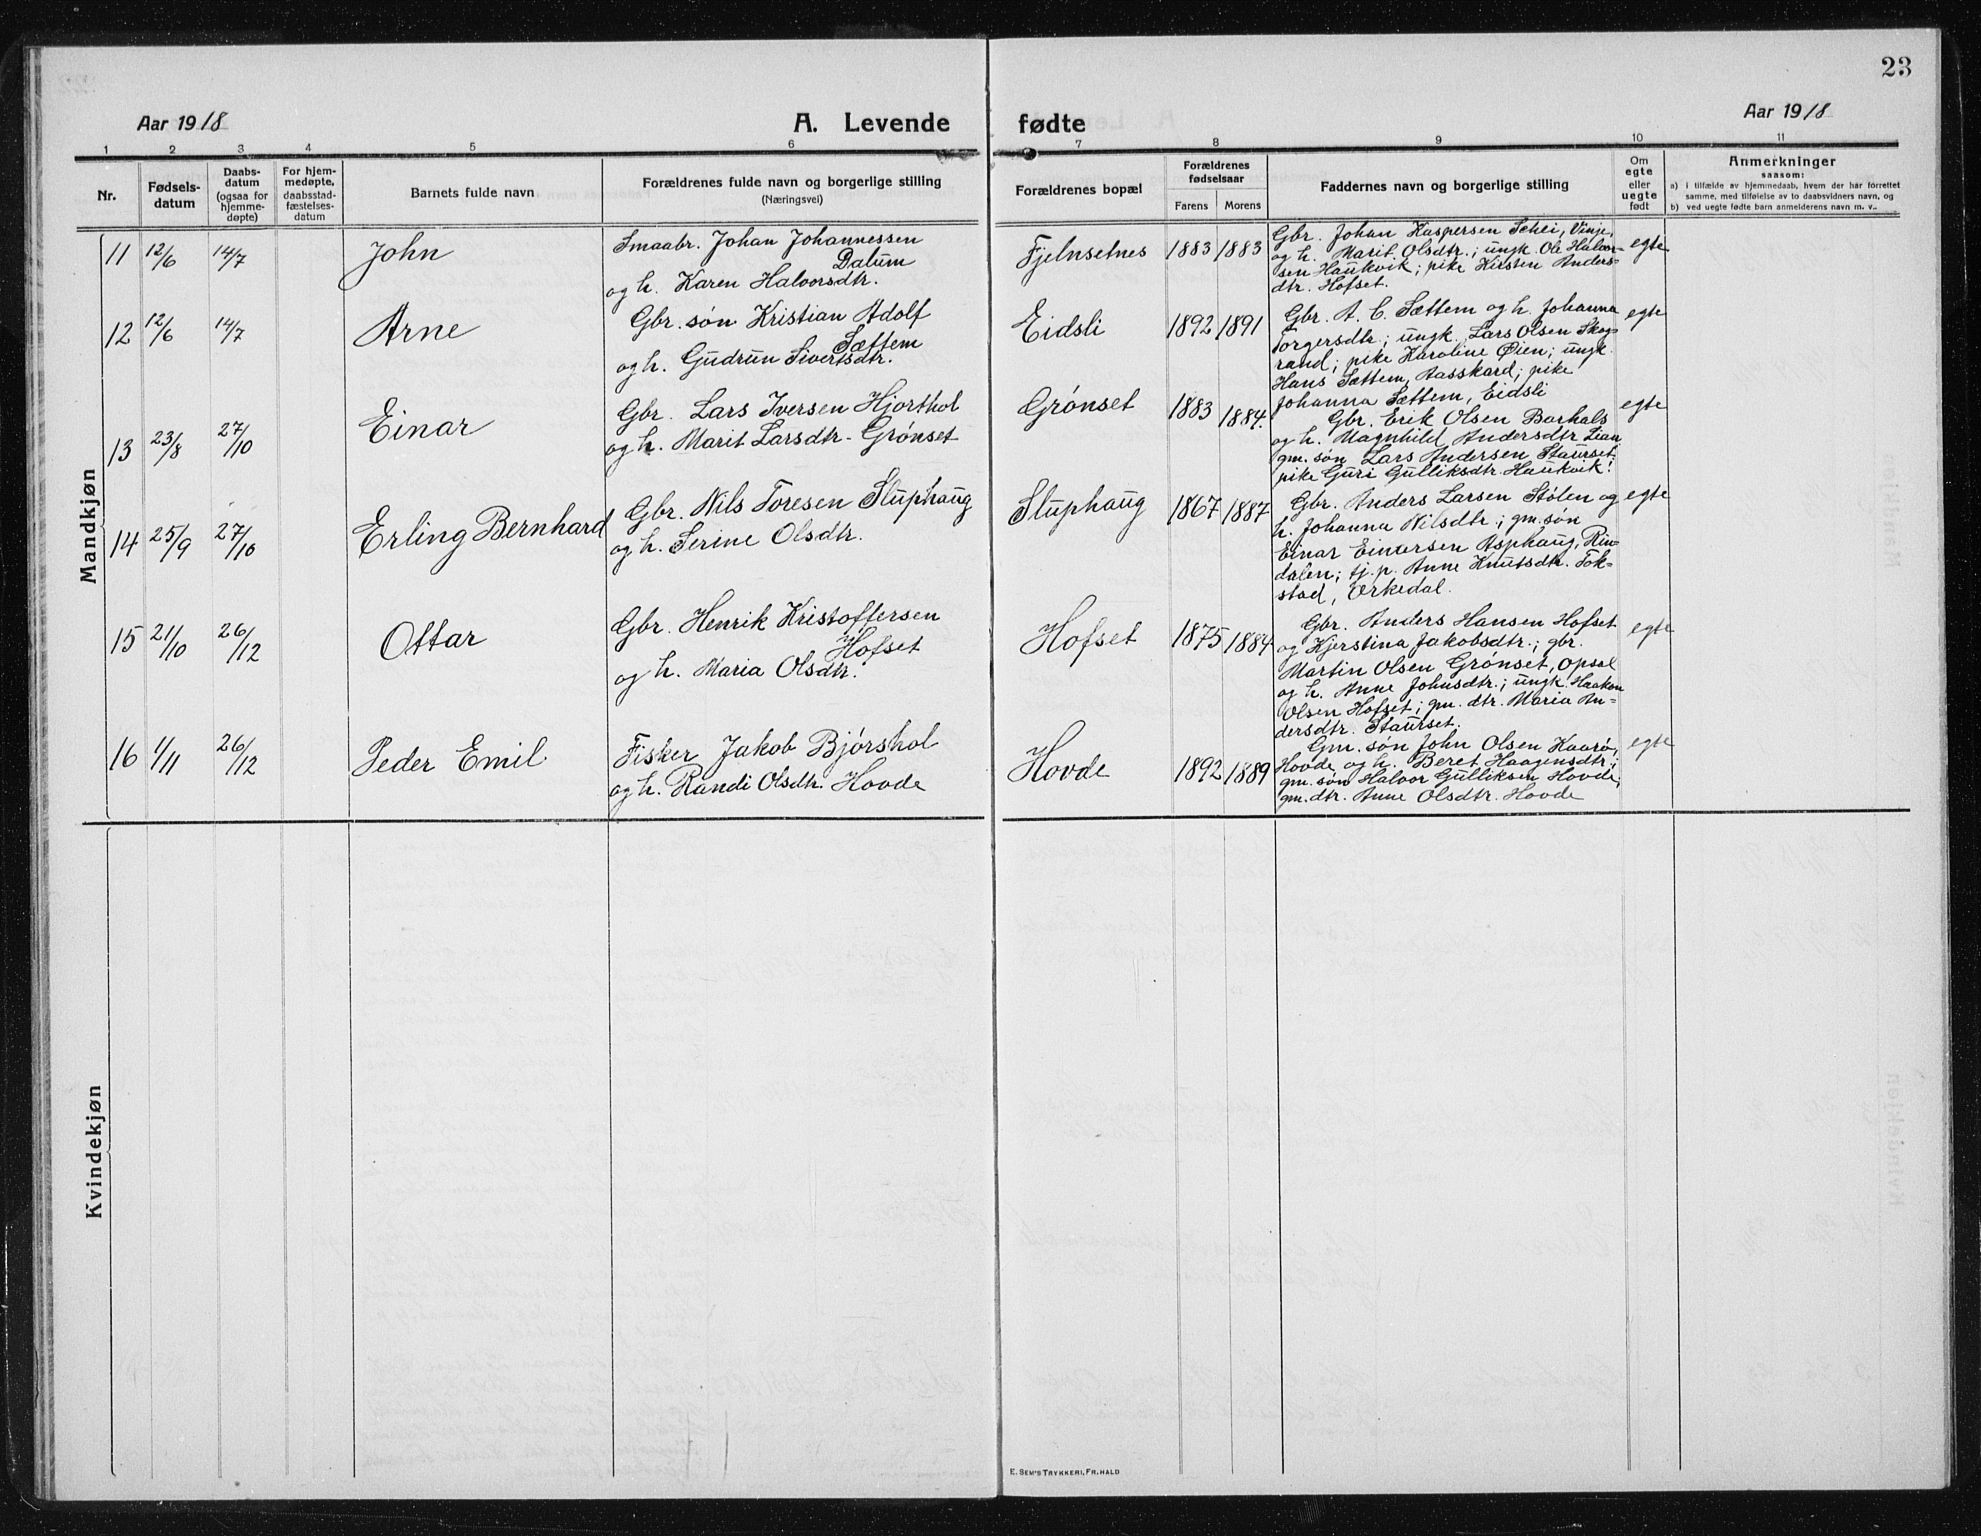 23
Aar 1918
A. Levende fødte
Aar 1918
1 2 3 4 5 6 7 8 9 10 11
Nr.
Fødsels-
datum
Daabs-
datum
(ogsaa for
hjemme-
døpte)
For hjem-
medøpte,
daabsstad-
fæstelses-
datum
Barnets fulde navn
Forældrenes fulde navn og borgerlige stilling
(Næringsvei)
Forældrenes bopæl
Forældrenes
fødselsaar
Farens Morens
Faddernes navn og borgerlige stilling
Om
egte
eller
uegte
født
Anmerkninger
saasom:
a) i tilfælde av hjemmedaab, hvem der har forrettet
samme, med tilføielse av to daabsvidners navn, og
b) ved uegte fødte barn anmelderens navn m. v.
Mandkjøn
11 12/6 14/7 John
Smaabr. Johan Johannessen
Dalum
og h. Karen Halvorsdtr.
Fjelnsetnes 1883 1883
Gbr. Johan Kaspersen Schei, Vinje,
og h. Marit Olsdtr.; ungk. Ole Halvor-
sen Haukvik; pike Kirsten Anders-
dtr. Hofset.
egte
12 12/6 14/7 Arne
Gbr. søn Kristian Adolf
Sættem
og h. Gudrun Sivertsdtr.
Eidsli 1892 1891
Gbr. A. C. Sættem og h. Johanna
Torgersdtr; ungk. Lars Olsen Skog-
rand; pike Karoline Øien; ungk.
Hans Sættem, Aasskard; pike
Johanna Sættem, Eidsli
egte
13 23/8 27/10 Einar
Gbr. Lars Iversen Hjorthol
og h. Marit Larsdtr. Grønset
Grønset 1883 1884.
Gbr. Erik Olsen Barhals
og h. Magnhild Andersdtr Lian
gm. søn Lars Andersen Staurset,
pike Guri Gulliksdtr. Haukvik!
egte
14 25/9 27/10 Erling Bernhard
Gbr. Nils Toresen Sluphaug
og h. Serine Olsdtr.
Sluphaug 1867 1887
Gbr. Anders Larsen Stølen og
h. Johanna Nilsdtr.; gm. søn
Einar Einarsen Asphaug, Rin-
dalen; tj. p. Anne Knutsdtr. Fok-
stad, Orkedal.
egte
15 21/10 26/12 Ottar
Gbr. Henrik Kristoffersen
Hofset
og h. Maria Olsdtr.
Hofset 1875 1884
Gbr. Anders Hansen Hofset
og Kjerstina Jakobsdtr.; gbr.
Martin Olsen Grønset, Opsal
og h. Anne Johnsdtr.; ungk. Haakon
Olsen Hofset; gm. dtr. Maria An-
dersdtr. Staurset.
egte
16 1/11 26/12 Peder Emil
Fisker Jakob Bjørshol
og h. Randi Olsdtr. Hovde
Hovde 1892 1889
Gm. søn John Olsen Kaarø,
Hovde og h. Beret Haagensdtr.;
gm. søn Halvor Gulliksen Hovde;
gm. dtr. Anne Olsdtr. Hovde
egte
Kvindekjøn
E. SEM'S TRYKKERI, FR.HALD